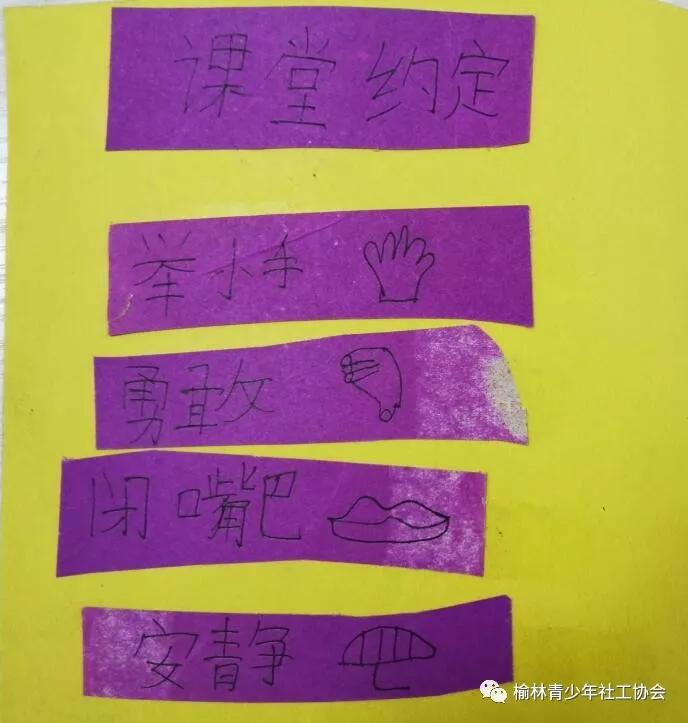 课堂约定
举小手
勇敢
闭嘴巴
安静
榆林青少年社工协会